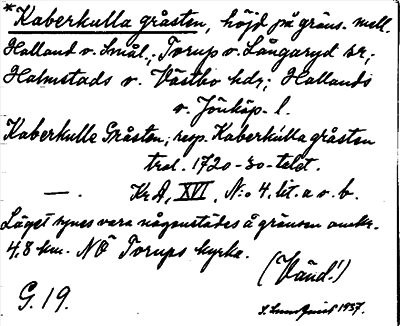 *Kaberkulla gråsten, höjd på gräns. mell.
Halland o. Smål.; Torup o. Långaryd sr;
Halmstads o. Västbo hdr; Hallands
o. Jönköp. l.
Kaberkulle Gråsten, resp. Kaberkulla gråsten
trol. 1720-30-talet.
—. KrA, XVI, N:o 4. lit. a o. b.
Läget synes vara någonstädes å gränsen omkr.
4,8 km. NÖ Torups kyrka.
(Vänd!)
G. 19.
S. Lundqvist 1937.